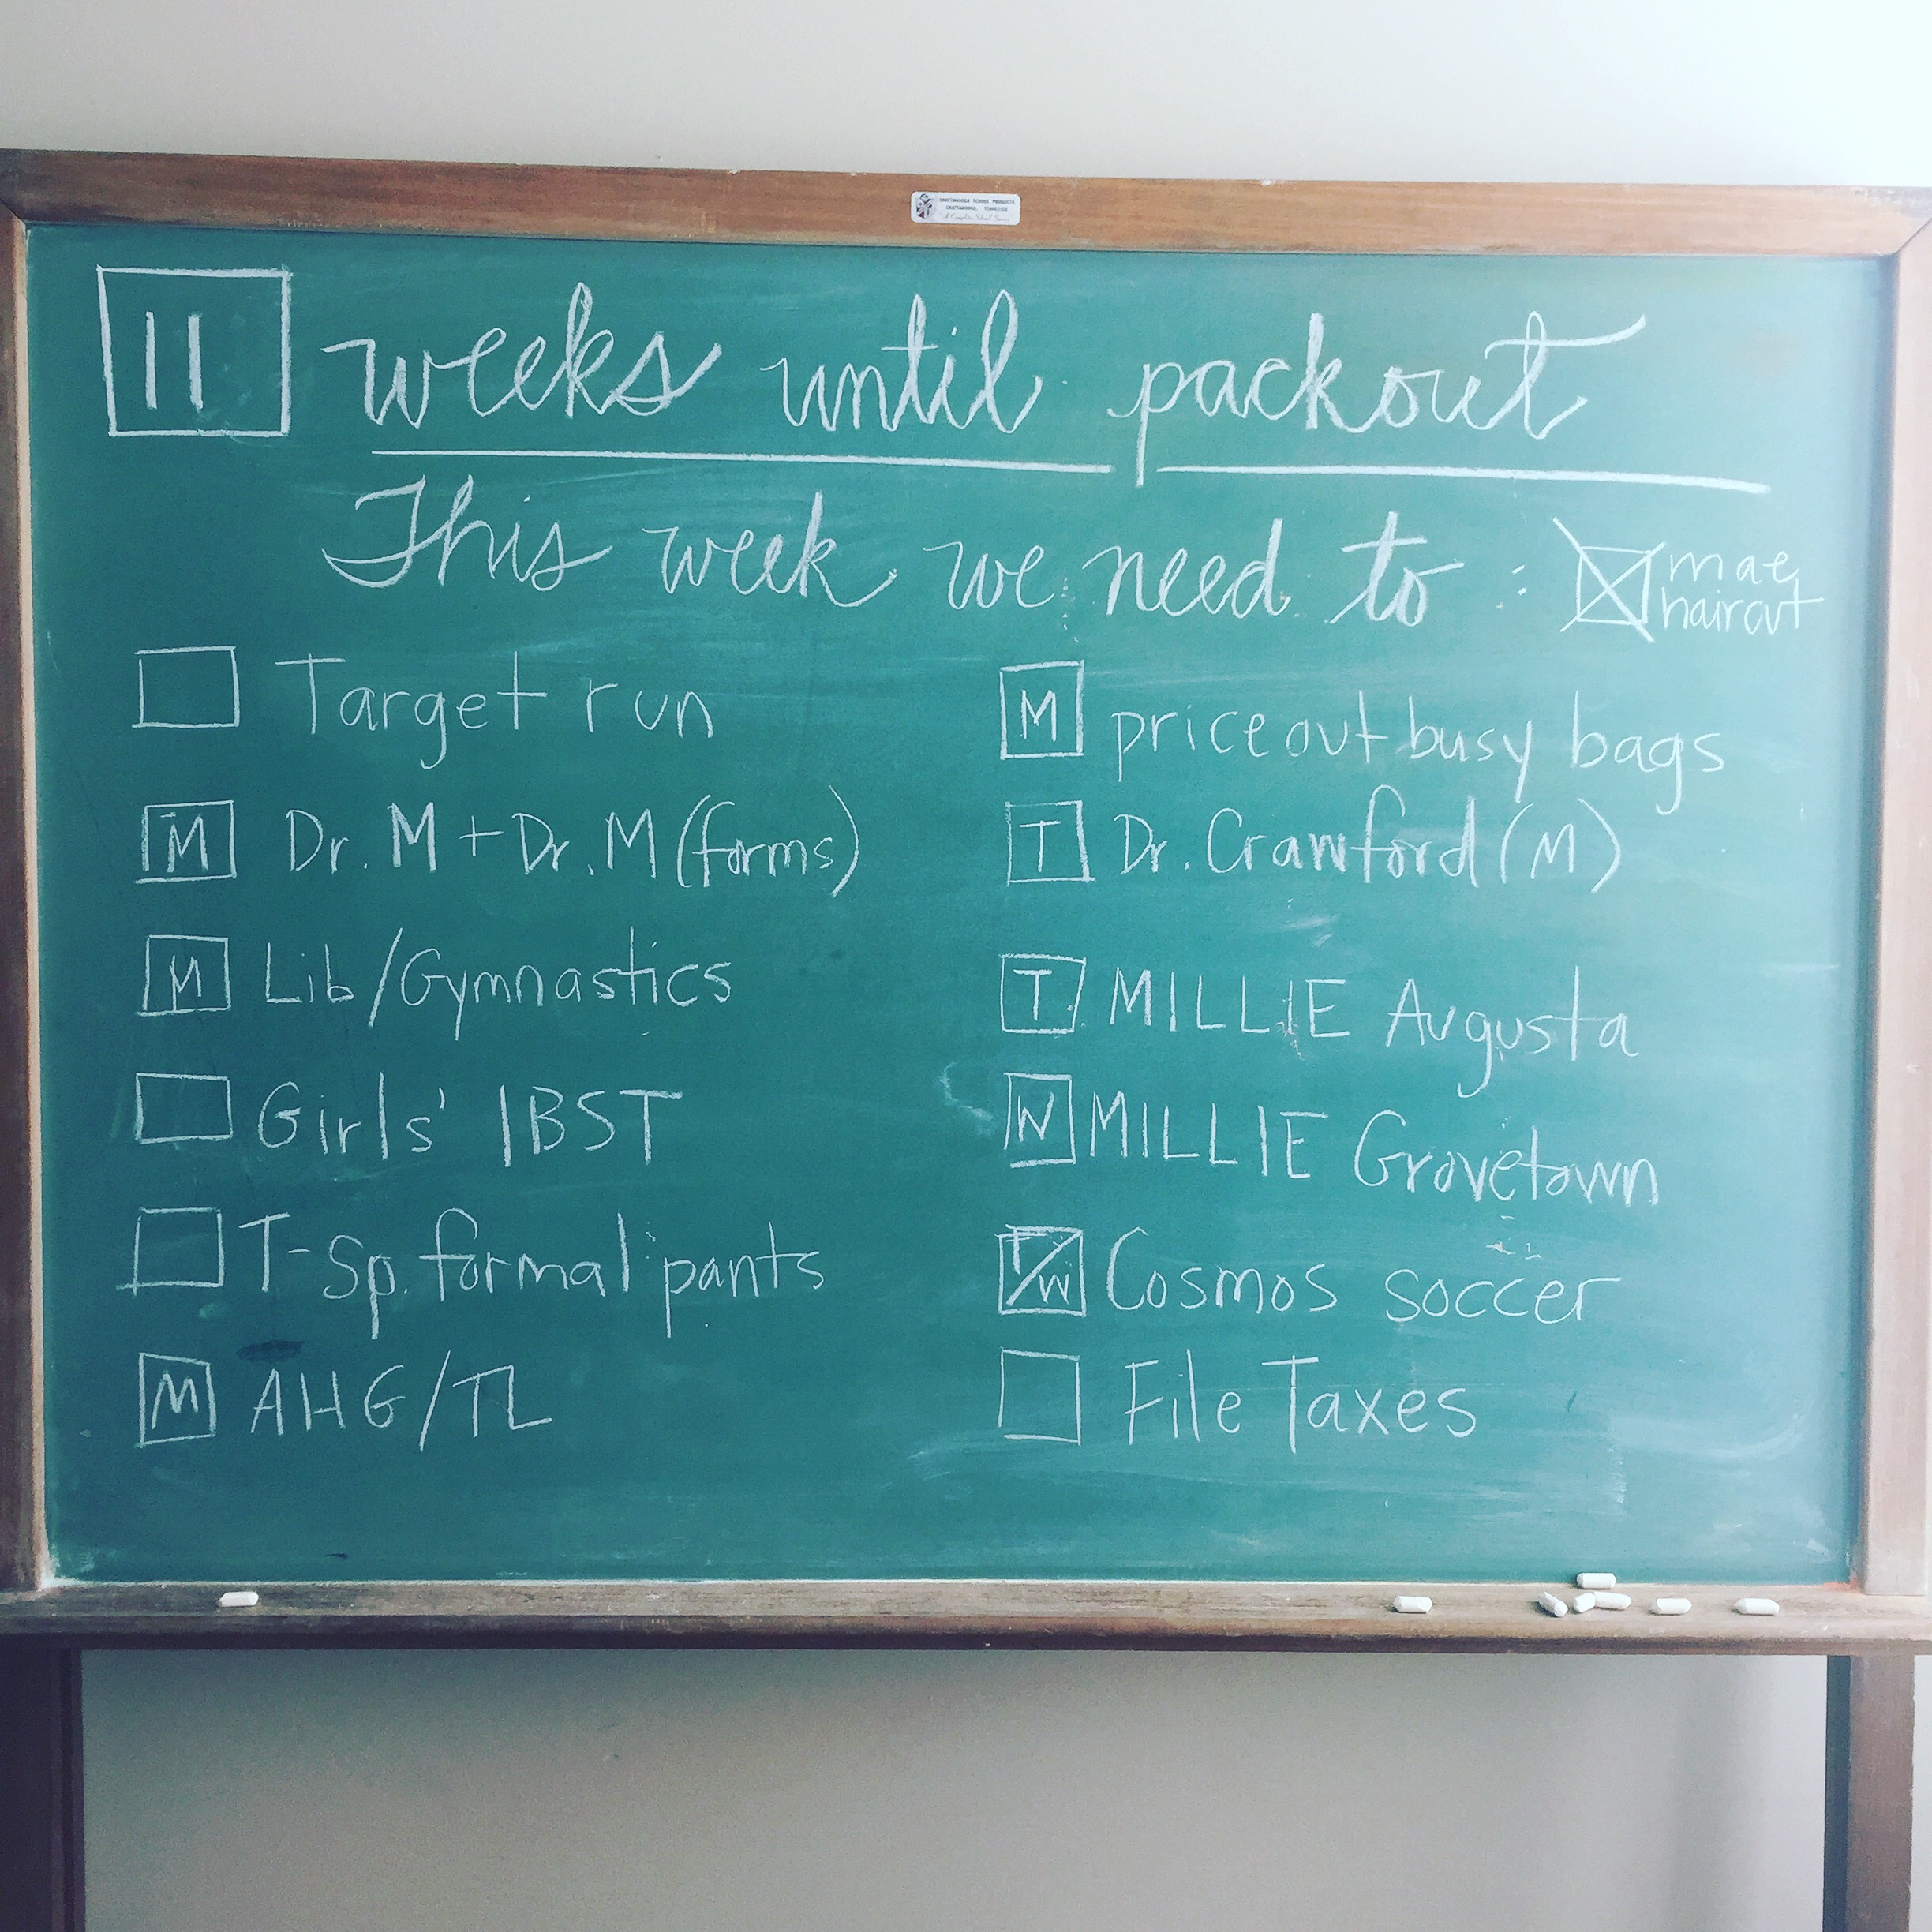 CHATTANOOGA SCHOOL PRODUCTS
CHATTANOOGA, TENNESSEE
"A Complete School Service"
11 weeks until packout
This week we need to :
mae
haircut
Target run
M Dr. M + Dr. M (forms)
M Lib/Gymnastics
Girls' IBST
T-Sp. formal pants
M AHG/TL
M price out busy bags
T Dr. Crawford (M)
T MILLIE Augusta
W MILLIE Grovetown
T/W Cosmos soccer
File Taxes